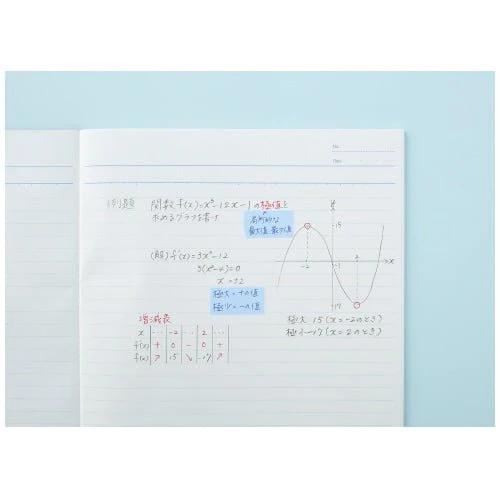 No.
Date
例題 関数 f(x)=x³-12x-1の極値と
求めるグラフを書け
局所的な
最大値・最小値
(解) f'(x)=3x²-12
3(x²-4)=0
x=±2
極大=+の値
極小=-の値
y
15
-2
-1
2
x
-17
極大 15(x=-2のとき)
極小-17(x=2のとき)
増減表
x … -2 … 2 …
f'(x) + 0 - 0 +
f(x) ↗ 15 ↘ -17 ↗